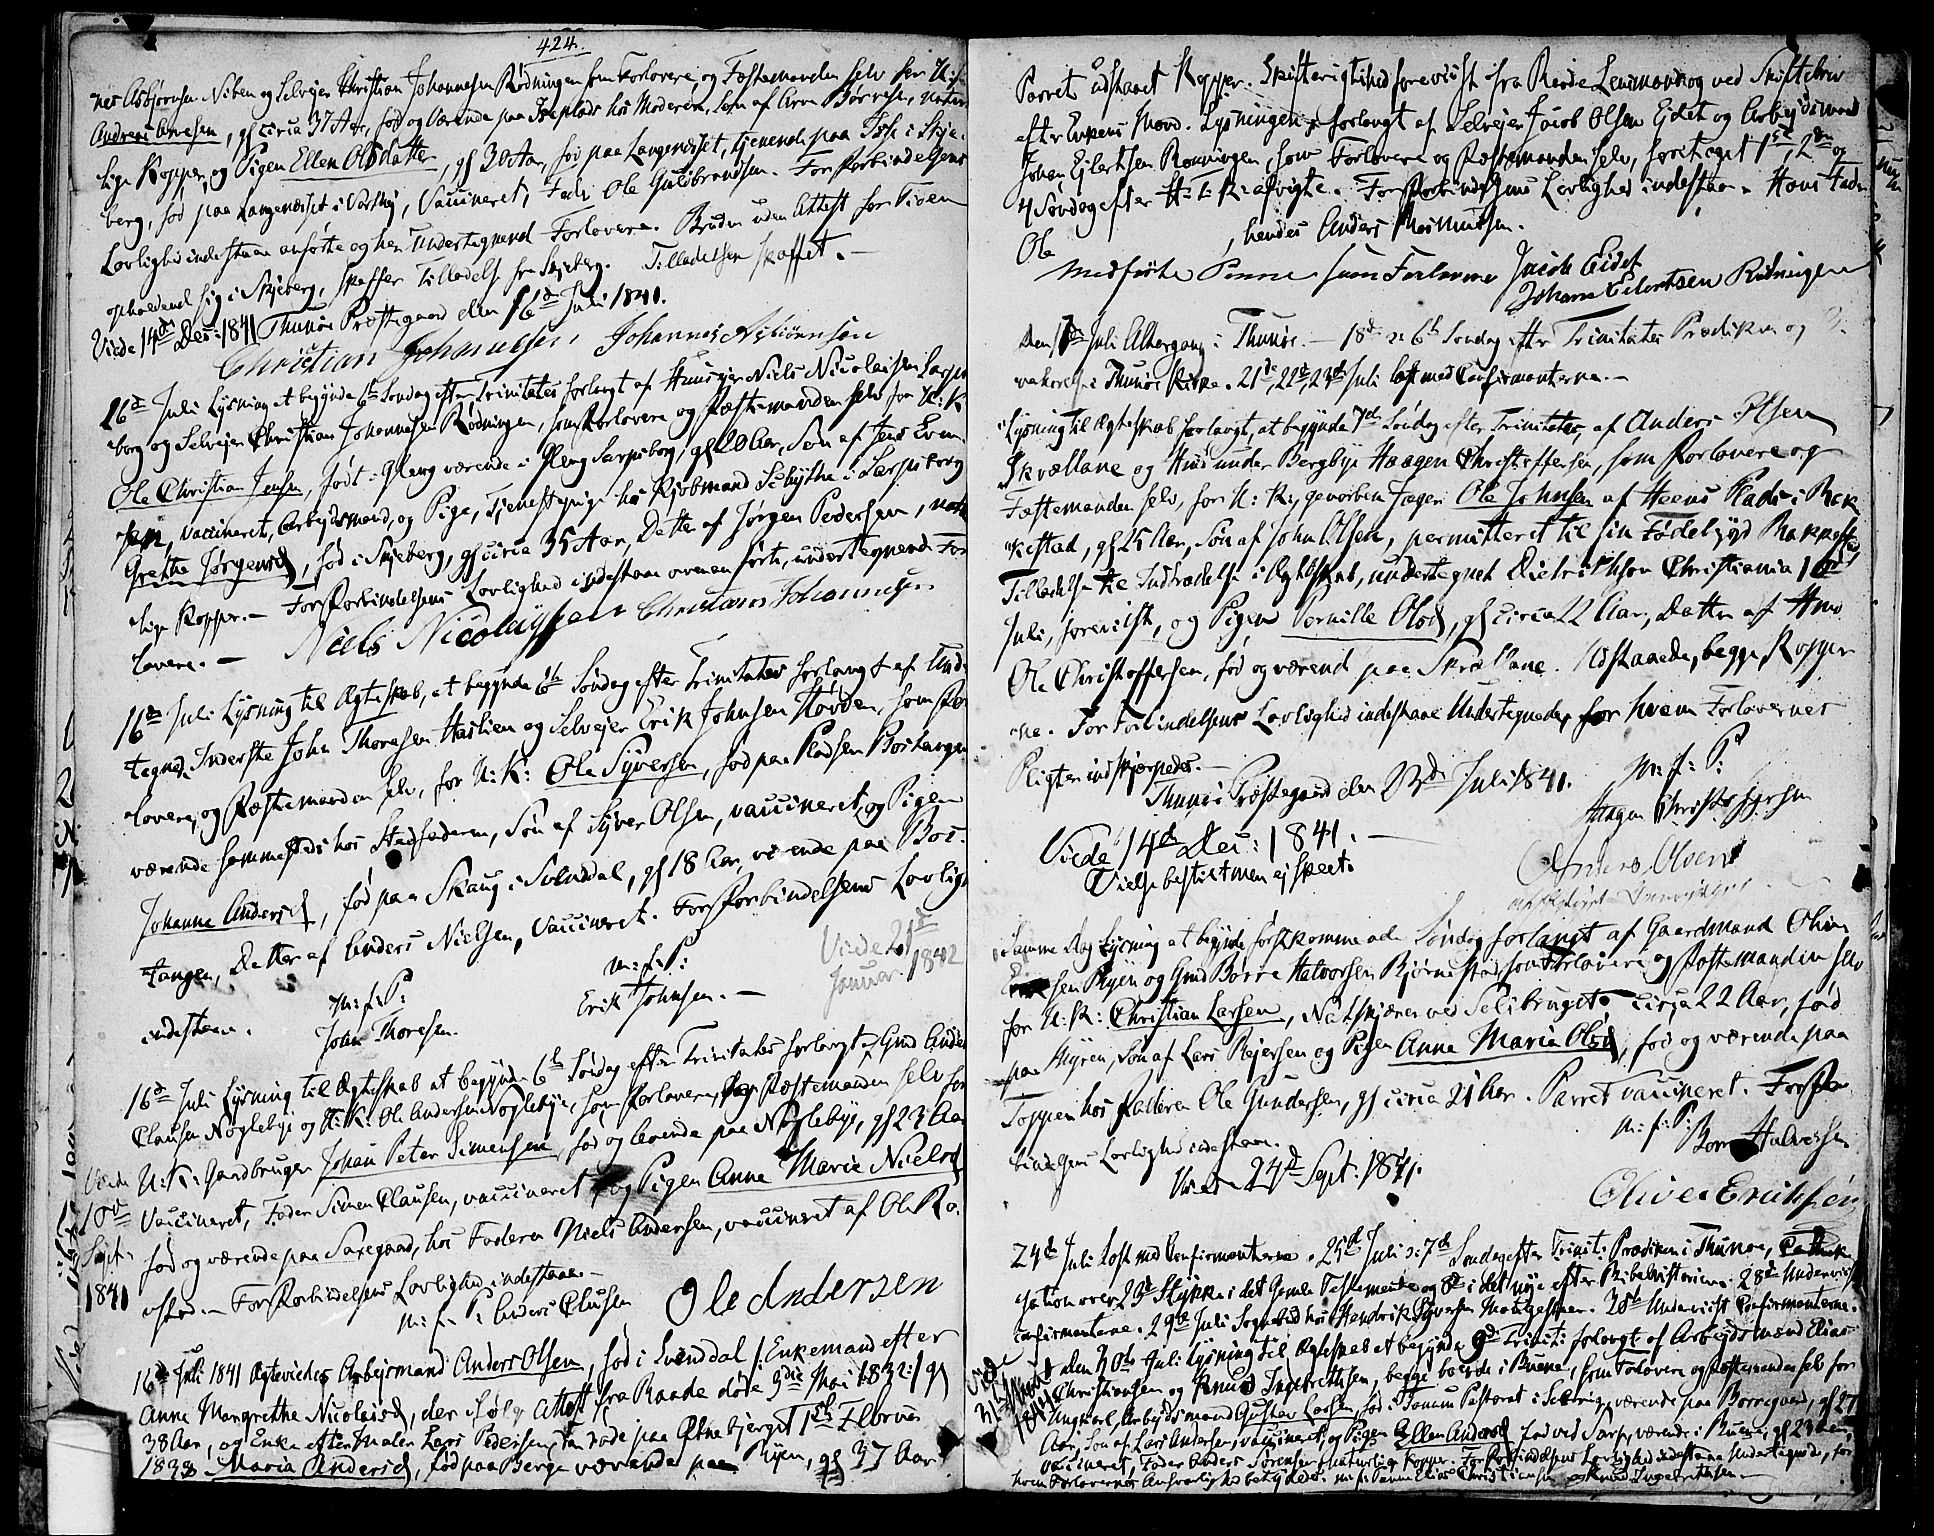 424.
Asbjørnsen Viken og Selvejer Christian Johannesen Rødningen som Forlovere og Fæstemanden selv for U:K:
Andreas Arnesen, gl circa 37 Aar, fød og værende paa hos Moderen, Søn af Arne Børresen,
lige Kopper, og Pigen Ellen Olsdatter, gl 30 Aar, fød paa Langenæsset, tjenende paa i Skje-
berg, fød paa Langenæsset i Vaccineret, Fader Ole Gulbrandsen. For Forbindelsens
Lovlighed indestaae anførte og her Undertegnende Forlovere. Bruden uden Attest for Tiden
opholdende sig i Skjeberg, skaffer Tilladelse fra Skjeberg. Tilladelsen skaffet.
Viede 14de Dec: 1841 Thunøe Præstegaard den 16de Juli 1841.
Christian Johannesen Johannes Asbiørnsen
16de Juli Lysning at begynde 6te Søndag efter Trinitates forlangt af Huusejer Niels Nicolaisen Sarps
borg og Selvejer Christian Johannesen Rødningen, som Forlovere og Fæstemanden selv for U:K
Ole Christian Jensen, født i Gleng værende i Gleng Sarpsborg, gl 20 Aar, Søn af Jens Even
sen, vaccineret, Arbejdsmand, og Pige, Tjenestepige hos Kjøbmand i Sarpsborg
Grethe Jørgensd, fød i Skjeberg, gl circa 35 Aar, Datter af Jørgen Pedersen, natur
lige Kopper. – For Forbindelsens Lovlighed indestaae ovenanførte, undertegnende For
lovere. – Niels Nicolaysen Christian Johannesen
16de Juli Lysning til Ægteskab, at begynde 6te Søndag efter Trinitates forlangt af Under
tegnede Inderste John Thoresen Haslien og Selvejer Erik Johnsen Hovden, som For
lovere, og Fæstemanden selv, for U:K: Ole Syversen, fød paa Pladsen Bostangen
værende sammesteds hos Stedfaderen, Søn af Syver Olsen, vaccineret, og Pigen
Johanne Andersd, fød paa Skaug i Svindal, gl 18 Aar, værende paa Bos-
tangen, Datter af Anders Nielsen, vaccineret. For Forbindelsens Lovlighed
indestaae. m: f: P: John Thoresen. m: f: P: Erik Johnsen. – Viede 21de Januar 1842
16de Juli Lysning til Ægteskab at begynde 6te Søndag efter Trinitates forlangt af Gmd Anders
Clausen Nøglebye og U:K: Ole Andersen Nøglebye, som Forlovere, og Fæstemanden selv for
U:K: Gaardbruger Johan Peter Simensen, fød og boende paa Nøglebye, gl 23 Aar
Vaccineret, Fader Simen Clausen, vaccineret, og Pigen Anne Marie Nielsd
fød og værende paa Saxegaard, hos Faderen Niels Andersen, vaccineret af Ole Ro-
Viede 10de Sept. 1841
. – For Forbindelsens Lovlighed indestaae. –
m. f. P. Anders Clausen Ole Andersen
16de Juli 1841 Ægteviedes Arbejdsmand Anders Olsen, fød i Svinddal /: Enkemand efter
Anne Margrethe Nicolaisd, der ifølge Attest fra Raade døde 3die Mai 1832:/ gl
38 Aar, og Enke efter Maler Lars Pedersen, som døde paa 1ste Februar
1838 Maria Andersd, fød paa Berga værende paa Ryen, gl 37 Aar
Parret udstaaet Kopper. Skifterigtighed foreviist fra Raade Lensmand og ved Skiftebrev
efter Enkens Mand. Lysningen forlangt af Selvejer Jacob Olsen Eidet og Arbejdsmand
Johan Ejlertsen Rønningen, som Forlovere og Fæstemanden selv, foretaget 1ste, 2den og
4 Søndag efter H: 3 K: afvigte. For Forbindelsens Lovlighed indestaae. Hans Fader
Ole , hendes Anders Rasmusen.
medførte Penne som Forlovere Jacob Eidet
Johann Eilertsen Rødningen
Den 17de Juli Altergang i Thunøe. – 18de 6te Søndag efter Trinitates Prædiken og
i Thunøe Kirke. 21de, 22de, 23de Juli læst med Confirmanterne. –
Lysning til Ægteskab forlangt, at begynde 7de Søndag efter Trinitates, af Anders Olsen
Skrællane og Huusmand under Bergbye Haagen Christoffersen, som Forlovere og
Fæstemanden selv, for U: K: gevorben Jæger Ole Johnsen af Heens Plads i Rak
kestad, gl 25 Aar, Søn af John Olsen, permitteret til sin Fødebygd Rakkestad
Tilladelse til Indtrædelse i Ægteskab, undertegnet Diedrichson Christiania 16de
Juli, foreviist, og Pigen Pernille Olsd, gl circa 22 Aar, Datter af Hmd
Ole Christoffersen, fød og værende paa Skrællane. Udstaaede, begge, Kopper
ne. For Forbindelsens Lovlighed indestaae Undertegnede, for hvem Forlovernes
Pligter indskjærpedes. –
Thunøe Præstegaard den 23de Juli 1841. m: f: P:
Haagen Christoffersen
Viede 14de Dec: 1841. –
Vielse bestilt men ej skeet.
Anders Olsen
Samme Dag Lysning at begynde førstkommende Søndag forlangt af Gaardmand Oliver
Eriksen Ryen og Gmd Børre Halvorsen Bjørnestad som Forlovere og Fæstemanden selv
for U: K: Christian Larsen, Natskjærer ved Selvbruget circa 22 Aar, fød
paa Myren, Søn af Lars Rejersen og Pigen Anne Maria Olsd, fød og værende paa
Toppen hos Faderen Ole Gundersen, gl circa 21 Aar. Parret vaccineret. For For
bindelsens Lovlighed indestaae. m: f: P: Børre Halvorsen
Viede 24de Sept. 1841.
Oliver Erichsen
24de Juli læst med Confirmanterne. 25de Juli 7de Søndag efter Trinit: Prædiken i Thunøe,
sation over 23de Stykke i det Gamle Testamente og 8de i det nye efter Bibelhistorien. 28de Underviist
Confirmanterne. 29de Juli Sognebud hos Hendrik Syversen. 30te Underviist Confirmanterne.
Viede 31 August 1841
den 30te Juli Lysning til Ægteskab at begynde 9de Trinit: forlangt af Arbejdsmand Elias
Christiansen og Knud Ingebrethsen, begge boende i Brunæ, som Forlovere og Fæstemanden selv for
Ungkarl, Arbejdsmand Gustav Larsen, fød i Tanum Pastorat i Sverrig, værende paa Borregaard, gl 27
Aar, Søn af Lars Andersen, vaccineret, og Pigen Ellen Andersd fød ved Sarp, værende i Brunæ, gl 23 Aar,
vaccineret, Fader Anders Sørensen, naturlige Kopper. For Forbindelsens Lovlighed indestaae Undertegnede, for
hvem Forlovernes Ansvarlighed betydedes. m. f. Penne Elias Christiansen og Knud Ingebrethsen. –